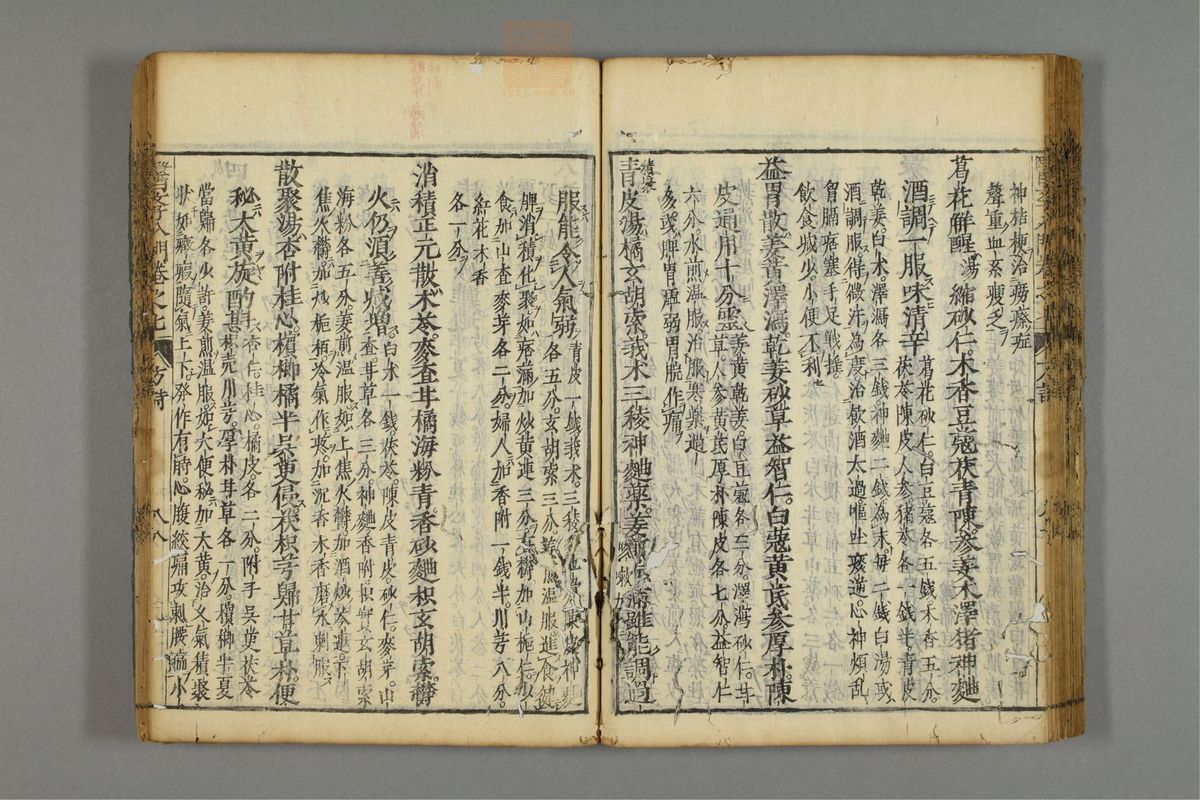 神桔梗治癆瘵症
聲重血紊瘦多
葛花解酲湯縮砂仁木香豆蔻茯青陳參姜木澤猪神麯
酒調一服味清辛葛花砂仁白豆蔻各五錢木香五分
茯苓陳皮人參猪苓各一錢半青皮
乾姜白术澤瀉各三錢神麯二錢為末每二錢白湯或
酒調服得微汗為度治飲酒太過嘔吐痰逆心神煩乱
智膈痞塞手足戰搖
飲食減少小便不利也
益胃散姜黃澤瀉乾姜砂草益智仁白蔻黃芪參厚朴陳
皮通用十分靈姜黃乾姜白豆蔻各三分澤瀉砂仁甘
草人參黃芪厚朴陳皮各七分益智仁
六分水煎温服治服寒藥過
多或脾胃虛弱胃脘作痛
青皮湯橘玄胡索莪术三稜神麯藥姜
雖能調
服能令人氣弱青皮一錢莪术三稜
各五分玄胡索三分
脾消積化聚如痞滿加炒黃連三分加山梔仁
食加山查麥芽各二分婦人加香附一錢半川芎八分
紅花木香
各一分
消積正元散术苓麥查甘橘海粉青香砂麯枳玄胡索欝
火仍須善減增白术一錢茯苓陳皮青皮砂仁麥芽山
查甘草各三分神麯香附枳實玄胡索
海粉各五分姜煎温服如上焦火欝加酒炒芩連下
焦火欝加炒梔栢冷氣作疼加沉香木香磨水刺服
散聚湯杏附桂心檳榔橘半吳萸侵茯枳芎歸甘草朴便
秘大黃旋酌斟杏仁桂心橘皮各二分附子吳萸茯苓
枳壳川芎厚朴甘草各一分檳榔半夏
當歸各少許姜煎温服如大便秘加大黃治久氣積聚
狀如癥瘕隨氣上下發作有時心腹絞痛攻刺腰脇小
卷之七
方詩
八八